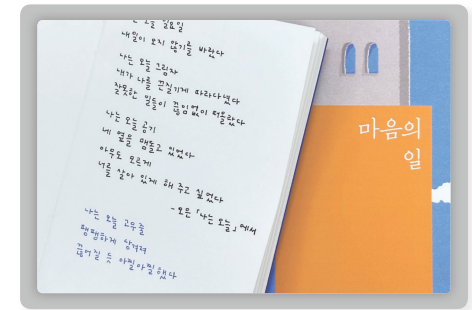 나는 오늘 일요일
내일이 오지 않기를 바랐다
나는 오늘 그림자
내가 나를 끈질기게 따라다녔다
잘못한 일들이 끊임없이 떠올랐다
나는 오늘 공기
네 옆을 맴돌고 있었다
아무도 모르게
너를 살아 있게 해 주고 싶었다
- 오은 「나는 오늘」에서
나는 오늘 고무줄
팽팽하게 당겨져
끊어질 듯 아찔아찔했다
마음의
일